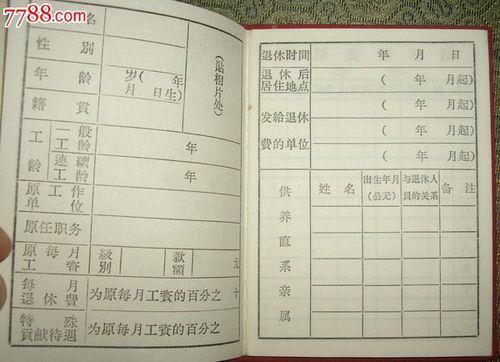 7788.com
名
性 別
年 齡 岁( 年
月 日生)
(贴相片处)
籍 貫
工 一般 年
齡 工齡
連續 年
工齡
原 工 作
单 位
原任职务
原 每 月 級 款 元
工 資 別 額
每 月 为原每月工資的百分之 十
退 休 費
特 殊 为原每月工資的百分之
貢献待遇
退休时间 年 月 日
退 休 后 ( 年 月起)
居住地点
( 年 月起)
发給退休 ( 年 月起)
費的单位
( 年 月起)
供养直系亲属
姓 名 出生年月 与退休人 备 注
(公元) 員的关系